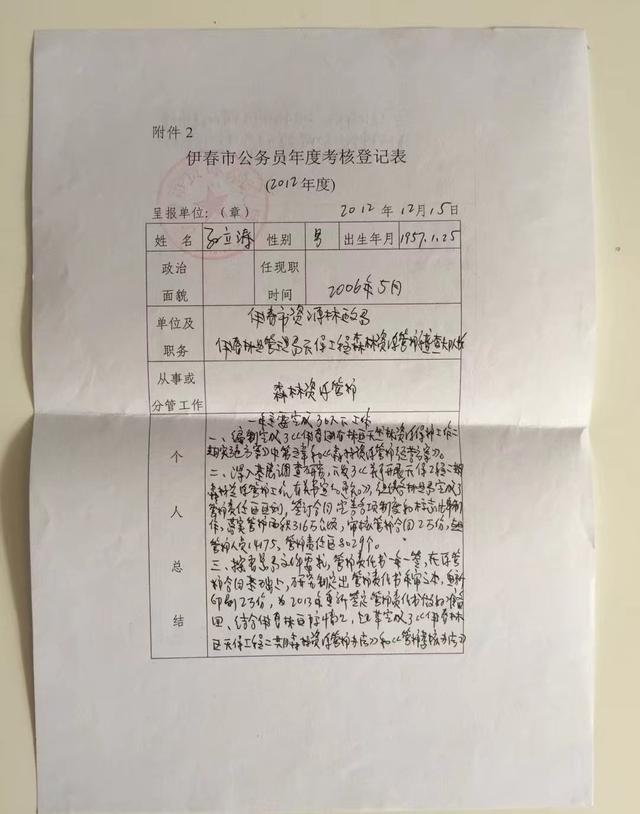 附件2
伊春市公务员年度考核登记表
(2012年度)
呈报单位：（章） 2012年12月15日
姓 名 立 性别 男 出生年月 1957.1.25
政治面貌 任现职时间 2006年5月
单位及职务 伊春市资源林政局
伊春林业管理局天保工程森林资源管护稽查大队
从事或分管工作 森林资源管护
个人总结
一年主要完成了以下工作
一、编制完成了《伊春
方案》中第 章和《森林资源管护经营方案》。
二、深入基层调查研究，《关于开展天保工程二期
森林 管护工作有关 的 》，林业局完成了
管护责任区区划，签订合同，完善各项制度和标志牌制
作，落实管护面积316万公顷，审核管护合同2万份，
管护人员19175，管护责任区3029个。
三、按 局文件 ，管护责任书一年一签，在原管
护合同基础上，研究制定出管护责任书 文本，重新
印刷2万份，为2013年重新签定管护责任书做好准备
四、结合伊春林区实际情况，起草完成了《伊春林
区天保工程二期森林资源管护办法》和《管护考核办法》